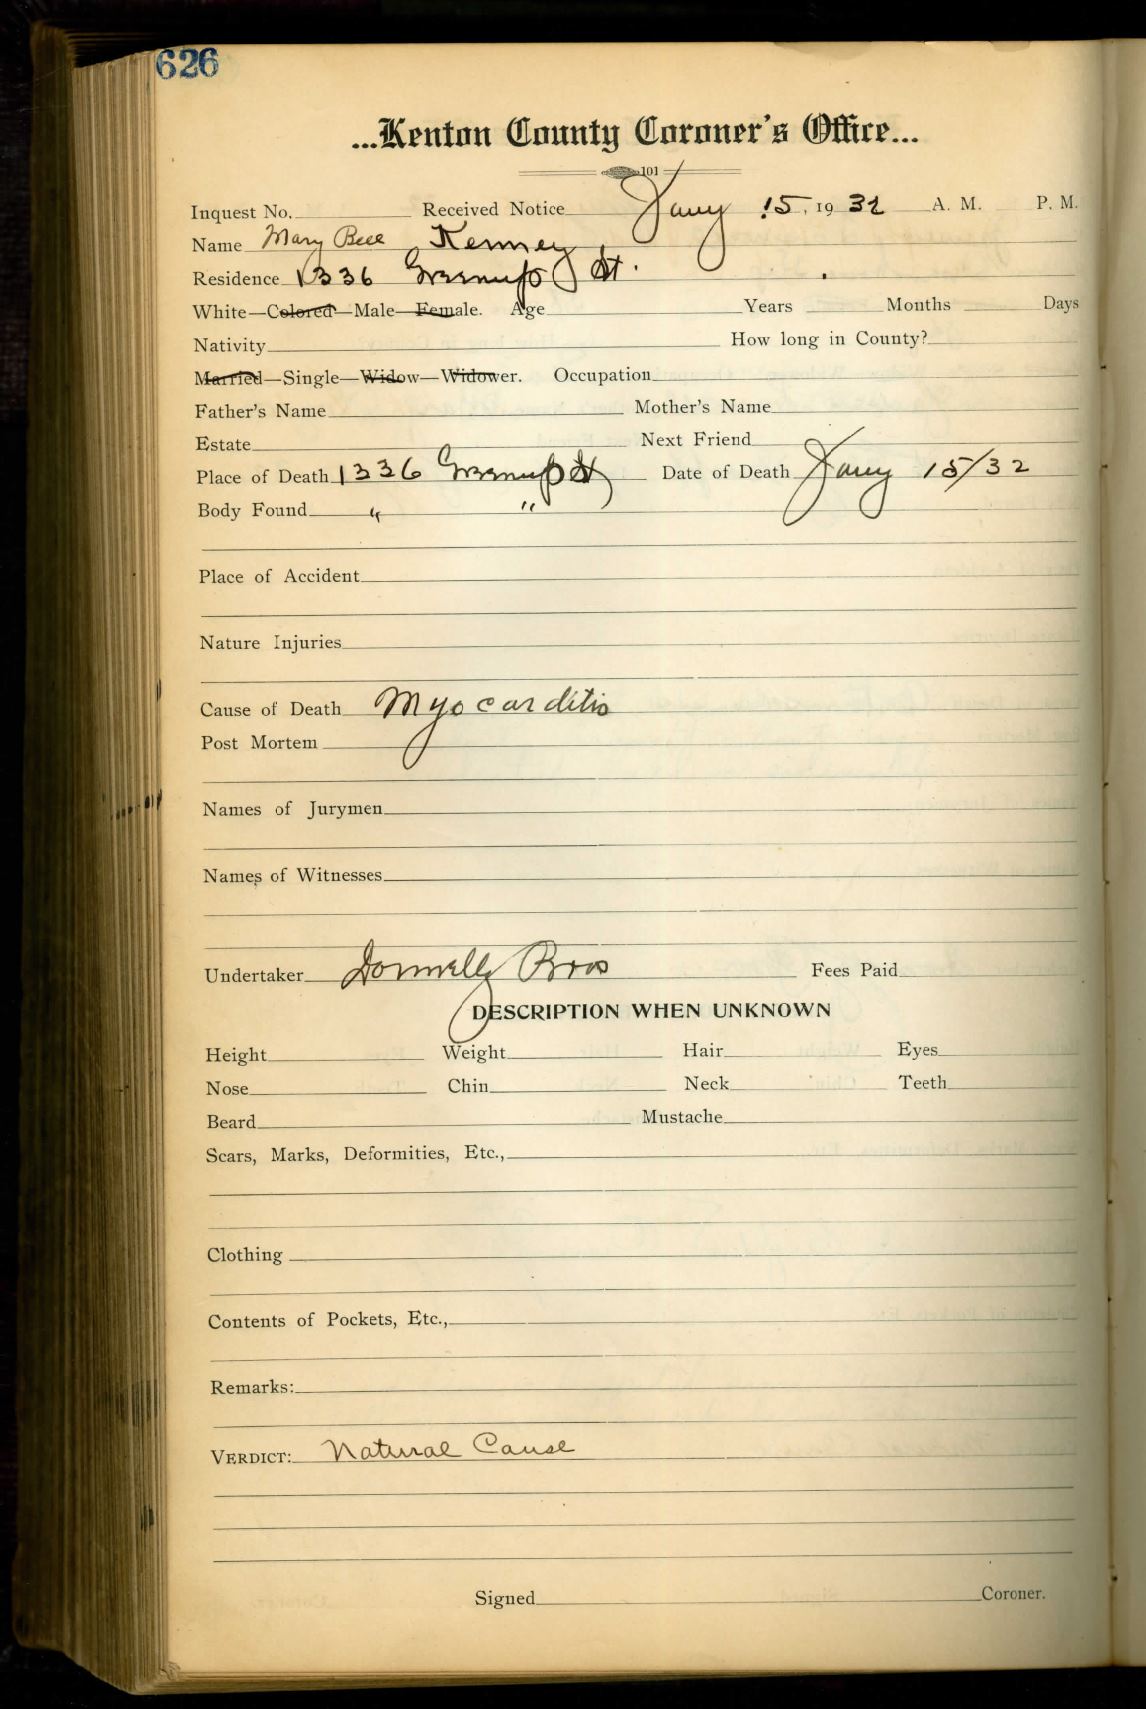 626
...Kenton County Coroner's Office...
101
Inquest No. Received Notice Jany 15, 19 32 A. M. P. M.
Name Mary Bell Kenney
Residence 1336 Greenup St.
White—Colored—Male—Female. Age Years Months Days
Nativity How long in County?
Married—Single—Widow—Widower. Occupation
Father's Name Mother's Name
Estate Next Friend
Place of Death 1336 Greenup St Date of Death Jany 15/32
Body Found " "
Place of Accident
Nature Injuries
Cause of Death Myocarditis
Post Mortem
Names of Jurymen
Names of Witnesses
Undertaker Donnelly Bros Fees Paid
DESCRIPTION WHEN UNKNOWN
Height Weight Hair Eyes
Nose Chin Neck Teeth
Beard Mustache
Scars, Marks, Deformities, Etc.,
Clothing
Contents of Pockets, Etc.,
Remarks:
VERDICT: Natural Cause
Signed Coroner.